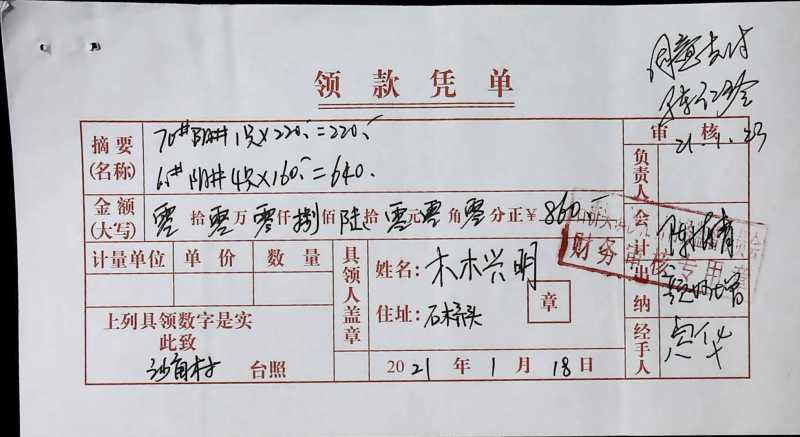 同意支付
21.1.23
领款凭单
摘要(名称) 70#阴井1只×220=220
60#阴井4只×160=640.
审核
负责人
金额(大写) 零拾零万零仟捌佰陆拾零元零角零分正¥860
会计
计量单位 单价 数量
具领人盖章 姓名:林兴明 章
住址:石桥头
财务审核专用章
出纳
上列具领数字是实
此致
沙角村 台照
2021年1月18日
经手人